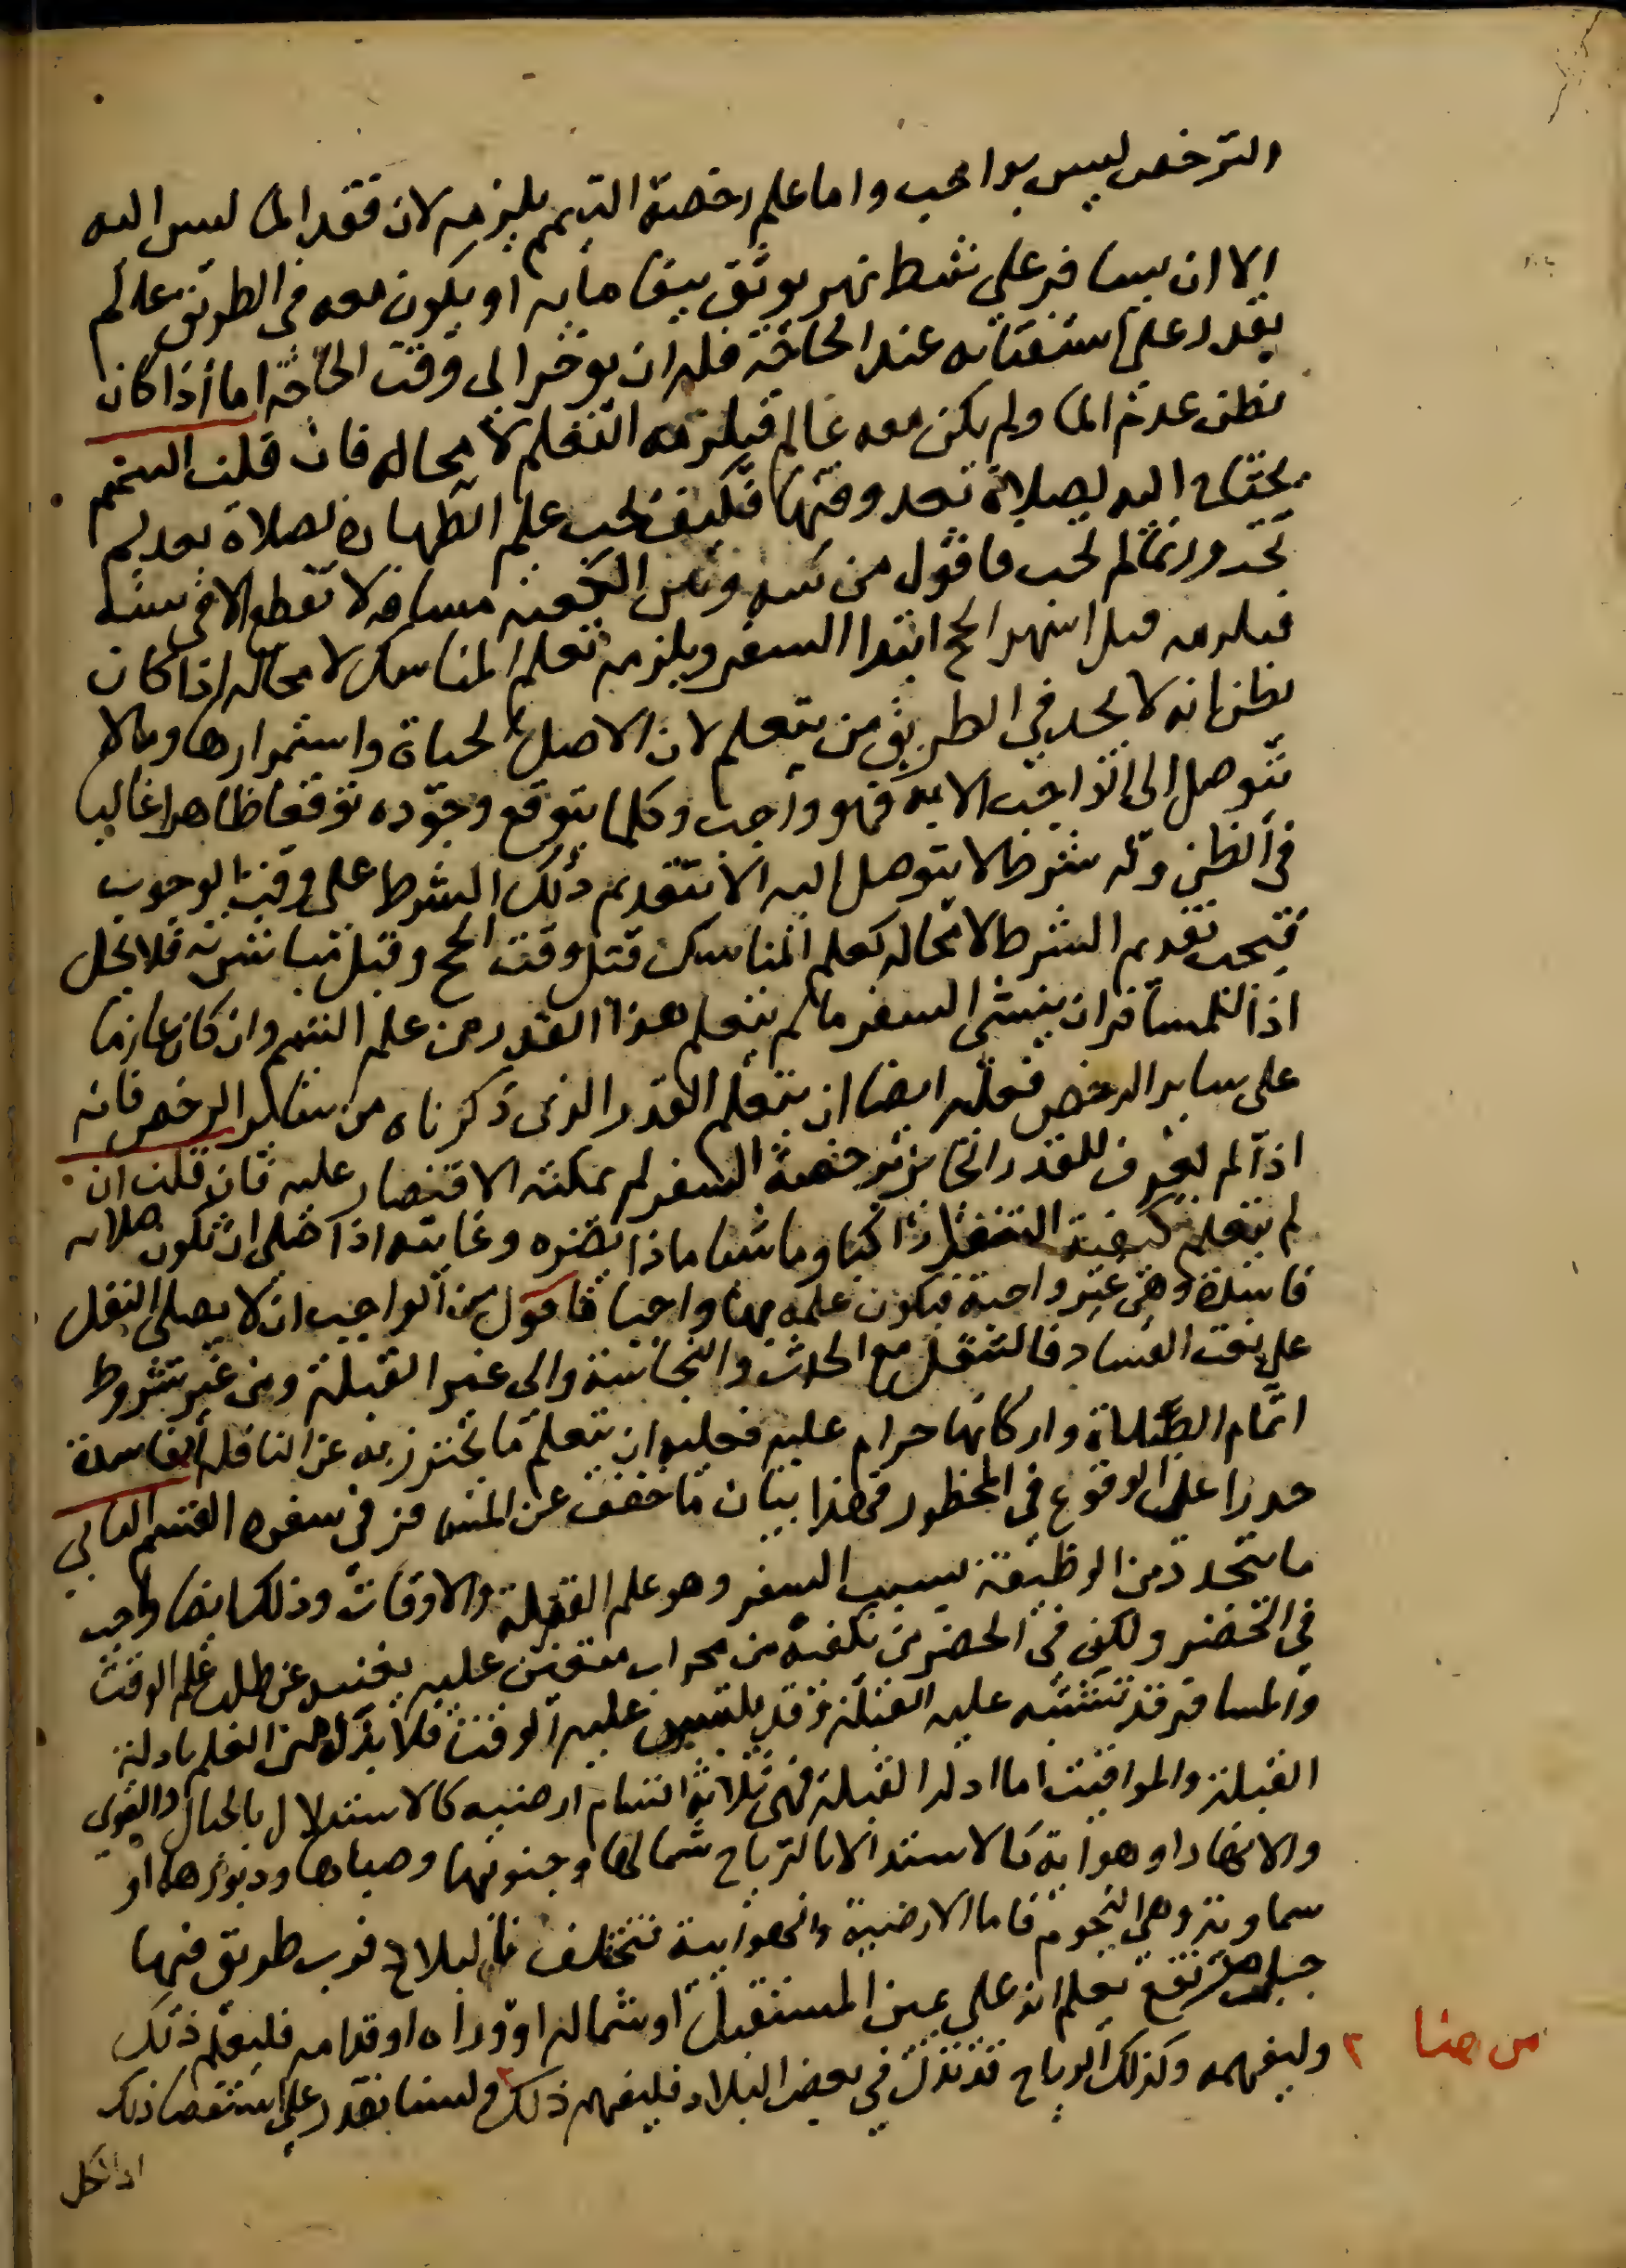 الترخص ليس بواجب واما علم رخصة التيمم يلزمه لان فقد الما ليس اليه
الا ان يسافر على شط نهر يوثق ببقا مايه او يكون معه في الطريق عالم
يقدر على استفتايه عند الحاجة فله ان يوخر الى وقت الحاجة اما اذا كان
يظن عدم الما ولم يكن معه عالم فيلزمه التعلم لا محاله فان قلت التيمم
يحتاج اليه لصلاة تعد وقتها فكيف يجب علم الطهارة لصلاة بعد لم
تجد وربما لم تجب فاقول من بينه وبين الكعبه مسافه لا تقطع الا في سنه
فيلزمه قبل اشهر الحج ابتدا السفر ويلزمه تعلم المناسك لا محاله اذا كان
يظن انه لا يجد في الطريق من يتعلم لان الاصل الحياة واستمرارها وما لا
يتوصل الى الواجب الا به فهو واجب وكلما يتوقع وجوده توقعا ظاهرا غالبا
في الظن وله شرط لا يتوصل اليه الا بتقديم ذلك الشرط على وقت الوجوب
فيجب تقديم الشرط لا محاله كعلم المناسك قبل وقت الحج وقبل مباشرته فلا يحل
اذا للمسافر ان ينشي السفر ما لم يتعلم هذا القدر من علم التيمم وان كان عازما
على ساير الرخص فعليه ايضا ان يتعلم القدر الذي ذكرناه من ساير الرخص فانه
اذا لم يعرف للقدر الجايز لرخصة السفر لم يمكنه الاقتصار عليه فان قلت ان
لم يتعلم كيفية التنفل راكبا وماشيا ماذا يضره وغايته اذا صلى ان تكون صلاته
فاسدة وهي غير واجبة فيكون علمه بها واجبا فاقول من الواجب ان لا يصلي النفل
على نعت الفساد فالتنفل مع الحدث والنجاسة والى غير القبلة ومن غير شروط
اتمام الصلاة واركانها حرام عليه فعليه ان يتعلم ما يحترز به عن النافلة الفاسدة
حذرا على الوقوع في المحظور فهذا بيان ما خفف عن المسافر في سفره القسم الثاني
ما يتجدد من الوظيفة بسبب السفر وهو علم القبلة والاوقات وذلك ايضا واجب
في الحضر ولكن في الحضر من يكفيه من محراب متفق عليه يغنيه عن طلب علم الوقت
والمسافر قد تشتبه عليه القبلة وقد يلتبس عليه الوقت فلا بد له من العلم بادلة
القبلة والمواقيت اما ادلة القبلة فهي ثلاثة اقسام ارضيه كالاستدلال بالجبال والقرى
والانهار او هوآية كالاستدلال بالرياح شمالها وجنوبها وصباها ودبورها او
سماوية وهي النجوم فاما الارضية والهوآيية فتختلف بالبلاد فرب طريق فيها
جبل مرتفع يعلم انه على يمين المستقبل او شماله او ورآه او قدامه فليعلم ذلك
وليفهمه وكذلك الرياح قد تدل في بعض البلاد فليفهم ذلك ولسنا نقدر على استقصا ذلك
اذ لكل
من هنا ٢